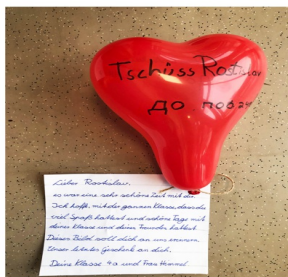 Tschüss Rostislav
До поба
Lieber Rostislav,
es war eine sehr schöne Zeit mit dir.
Ich hoffe, mit der ganzen Klasse, dass du
viel Spaß hattest und schöne Tage mit
deiner Klasse und deinen Freunden hattest.
Dieses Bild soll dich an uns erinnern.
Unser letztes Geschenk an dich.
Deine Klasse 4a und Frau Himmel